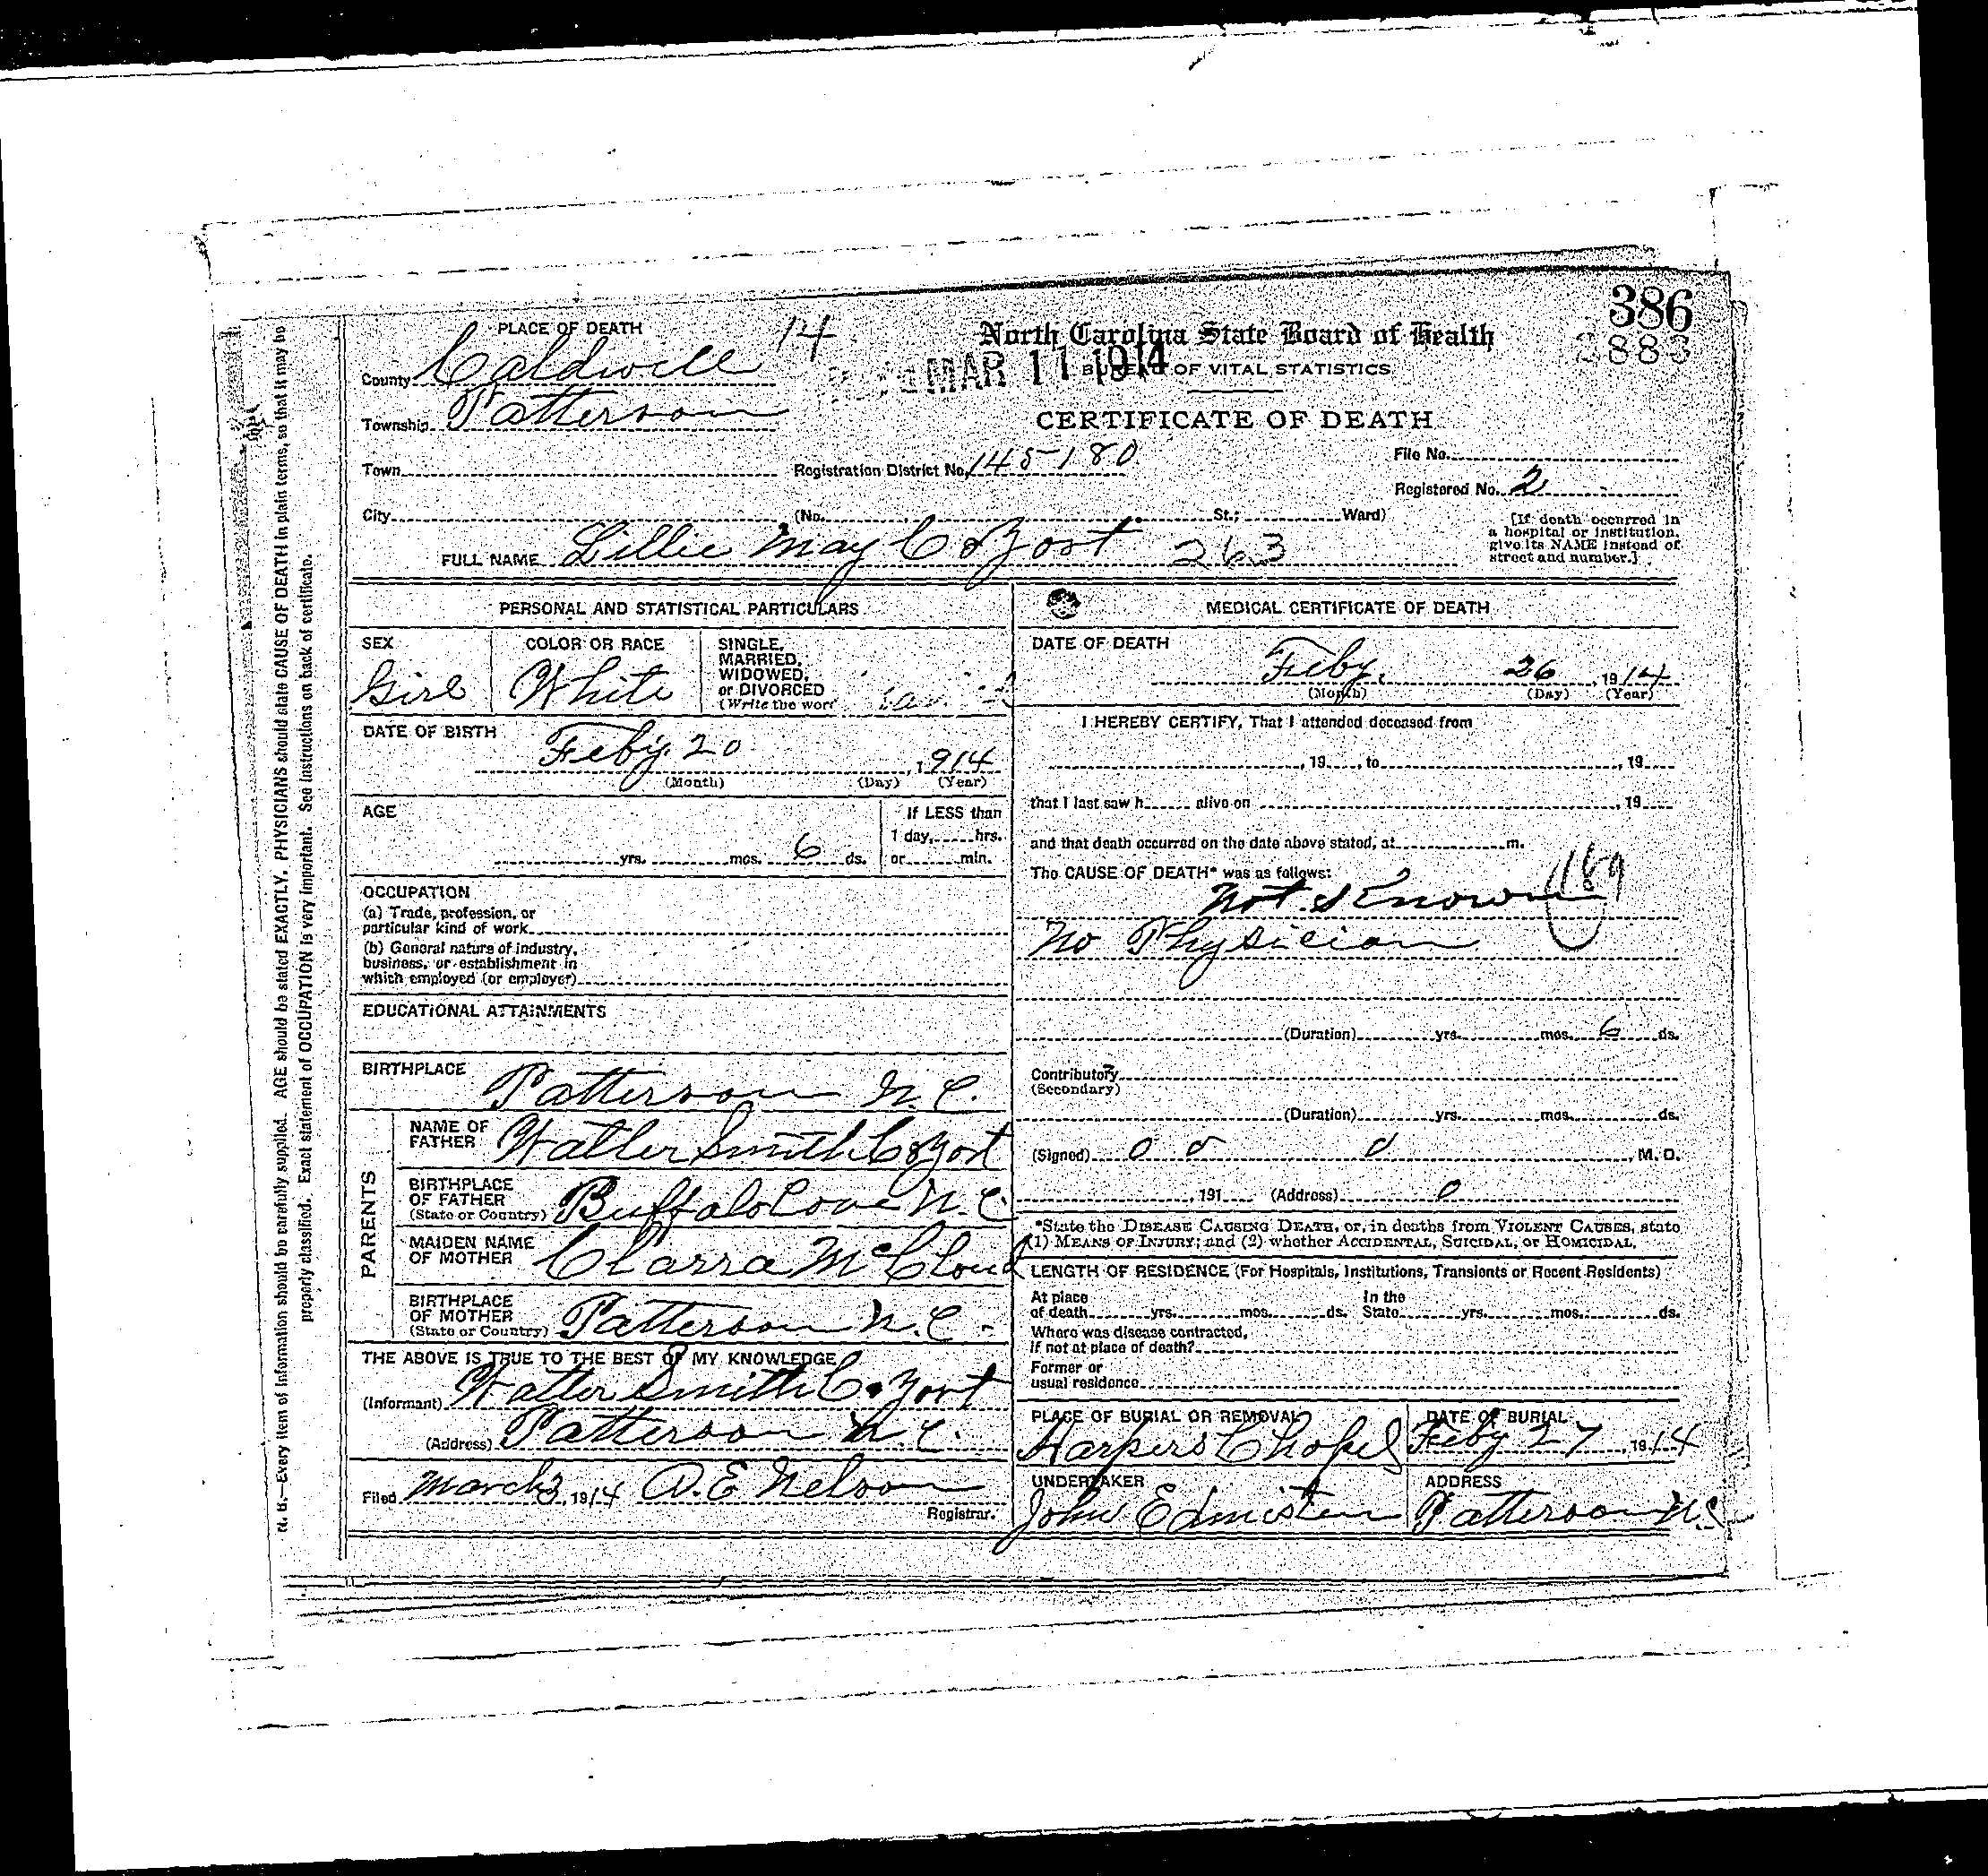 386
PLACE OF DEATH 14 North Carolina State Board of Health
County Caldwell MAR 11 1914 BUREAU OF VITAL STATISTICS
Township Patterson CERTIFICATE OF DEATH
Town Registration District No. 145-180 File No.
Registered No. 2
City (No. St.; Ward)
[If death occurred in
a hospital or institution,
give its NAME instead of
street and number.]
FULL NAME Lillie May Cozort 263
PERSONAL AND STATISTICAL PARTICULARS
SEX
Girl
COLOR OR RACE
White
SINGLE,
MARRIED,
WIDOWED,
or DIVORCED
(Write the wor
DATE OF BIRTH
Feby. 20, 1914
(Month) (Day) (Year)
AGE
yrs. mos. 6 ds.
If LESS than
1 day, hrs.
or min.
OCCUPATION
(a) Trade, profession, or
particular kind of work
(b) General nature of industry,
business, or establishment in
which employed (or employer)
EDUCATIONAL ATTAINMENTS
BIRTHPLACE
Patterson N.C.
PARENTS
NAME OF
FATHER Walter Smith Cozort
BIRTHPLACE
OF FATHER
(State or Country) Buffalo Cove N.C.
MAIDEN NAME
OF MOTHER Clarra McCloud
BIRTHPLACE
OF MOTHER
(State or Country) Patterson N.C.
THE ABOVE IS TRUE TO THE BEST OF MY KNOWLEDGE
(Informant) Walter Smith Cozort
(Address) Patterson N.C.
Filed March 3, 1914 A.E. Nelson
Registrar.
MEDICAL CERTIFICATE OF DEATH
DATE OF DEATH
Feby. 26, 1914
(Month) (Day) (Year)
I HEREBY CERTIFY, That I attended deceased from
, 19 , to , 19
that I last saw h alive on , 19
and that death occurred on the date above stated, at m.
The CAUSE OF DEATH* was as follows:
Not Known 189
No Physician
(Duration) yrs. mos. 6 ds.
Contributory
(Secondary)
(Duration) yrs. mos. ds.
(Signed) 0 0 0 , M. D.
, 191 (Address) 0
*State the DISEASE CAUSING DEATH, or, in deaths from VIOLENT CAUSES, state
(1) MEANS OF INJURY; and (2) whether ACCIDENTAL, SUICIDAL, or HOMICIDAL.
LENGTH OF RESIDENCE (For Hospitals, Institutions, Transients or Recent Residents)
At place In the
of death yrs. mos. ds. State yrs. mos. ds.
Where was disease contracted,
if not at place of death?
Former or
usual residence
PLACE OF BURIAL OR REMOVAL
Harpers Chapel
DATE OF BURIAL
Feby 27, 1914
UNDERTAKER
John Edmisten
ADDRESS
Patterson N.C.
N. B.—Every item of information should be carefully supplied. AGE should be stated EXACTLY. PHYSICIANS should state CAUSE OF DEATH in plain terms, so that it may be
properly classified. Exact statement of OCCUPATION is very important. See instructions on back of certificate.